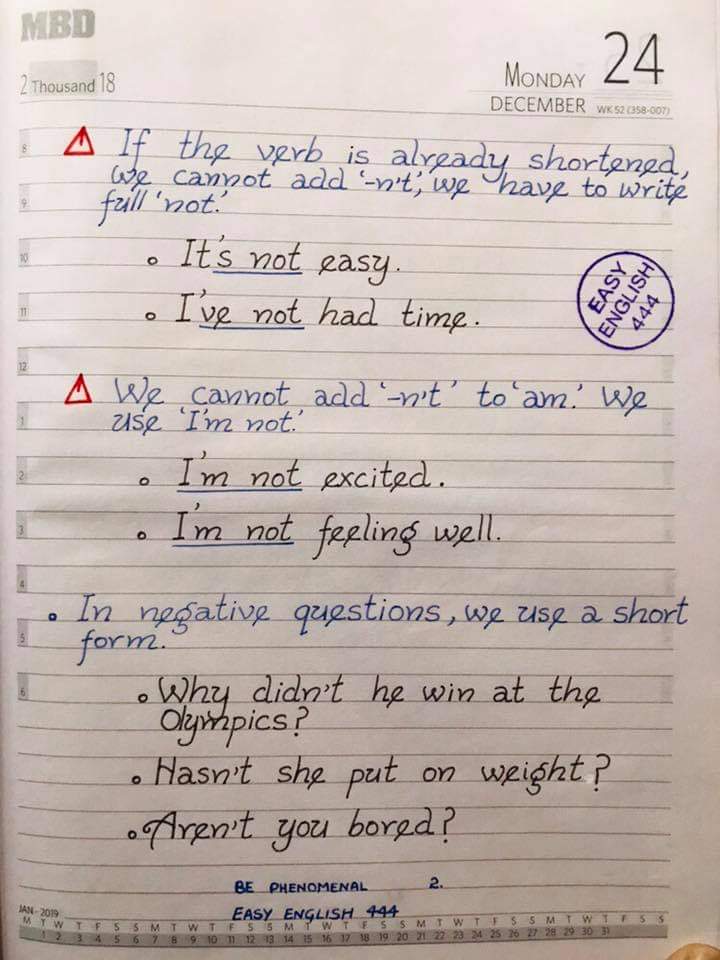 MBD
2 Thousand 18
MONDAY 24
DECEMBER WK 52 (358-007)
8
If the verb is already shortened,
we cannot add '-n't', we have to write
9
full 'not.'
10
• It's not easy.
EASY
ENGLISH
444
11
• I've not had time.
12
We cannot add '-n't' to 'am.' We
1
use 'I'm not.'
2
• I'm not excited.
3
• I'm not feeling well.
4
• In negative questions, we use a short
5
form.
6
• Why didn't he win at the
Olympics?
• Hasn't she put on weight?
• Aren't you bored?
BE PHENOMENAL 2.
EASY ENGLISH 444
JAN - 2019
M T W T F S S M T W T F S S M T W T F S S M T W T F S S M T W T F S S
1 2 3 4 5 6 7 8 9 10 11 12 13 14 15 16 17 18 19 20 21 22 23 24 25 26 27 28 29 30 31